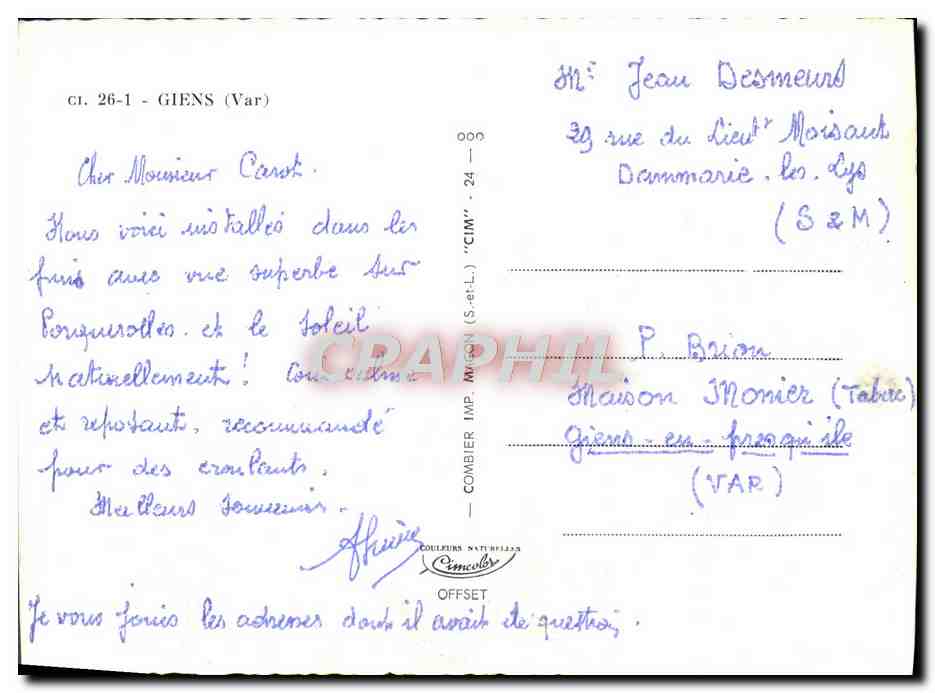 CI. 26-1 - GIENS (Var)
Cher Monsieur Carot.
Nous voici installés dans les
pins avec vue superbe sur
Porquerolles et le soleil
naturellement! Coin calme
et reposant, recommandé
pour des croulants.
Meilleurs souvenirs.
Je vous joins les adresses dont il avait été question.
COMBIER IMP. MACON (S.-et-L.) "CIM" - 24
COULEURS NATURELLES
Cimcolor
OFFSET
CPAPHIL
Mr Jean Desmeurs
39 rue du Lieutt Moisant
Dammarie. les. Lys
(S & M)
P. Brion
Maison Monier (Tabac)
Giens-en-presqu'ile
(VAR)